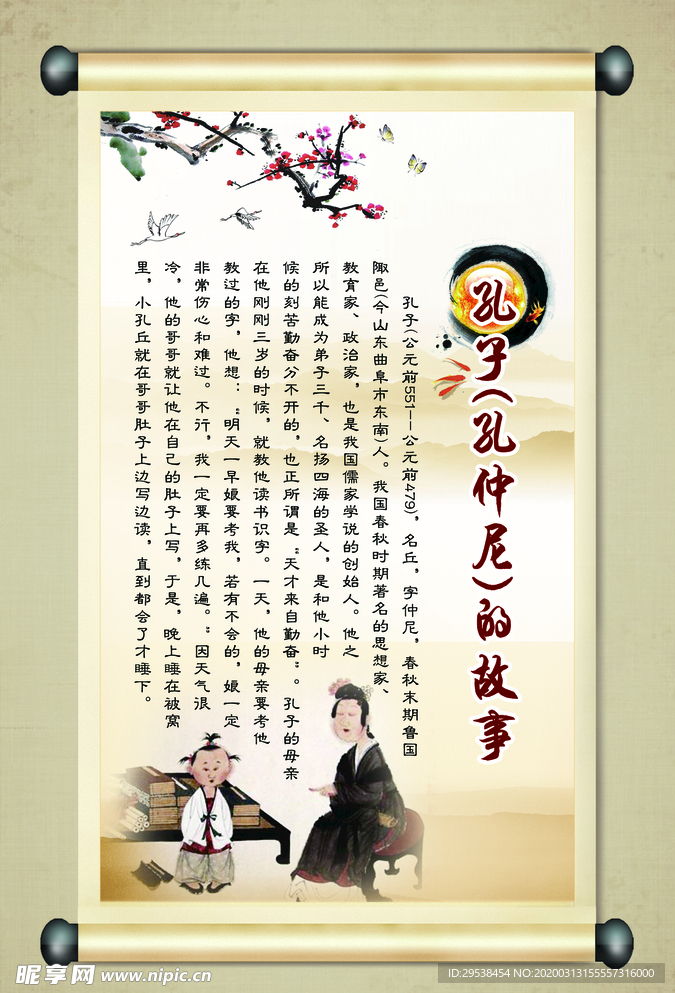 孔子(孔仲尼)的故事
孔子(公元前551——公元前479)，名丘，字仲尼，春秋末期鲁国
陬邑(今山东曲阜市东南)人。我国春秋时期著名的思想家、
教育家、政治家，也是我国儒家学说的创始人。他之
所以能成为弟子三千、名扬四海的圣人，是和他小时
候的刻苦勤奋分不开的，也正所谓是“天才来自勤奋”。孔子的母亲
在他刚刚三岁的时候，就教他读书识字。一天，他的母亲要考他
教过的字，他想：“明天一早娘要考我，若有不会的，娘一定
非常伤心和难过。不行，我一定要再多练几遍。”因天气很
冷，他的哥哥就让他在自己的肚子上写，于是，晚上睡在被窝
里，小孔丘就在哥哥肚子上边写边读，直到都会了才睡下。
昵享网 www.nipic.cn
ID:29538454 NO:20200313155557316000